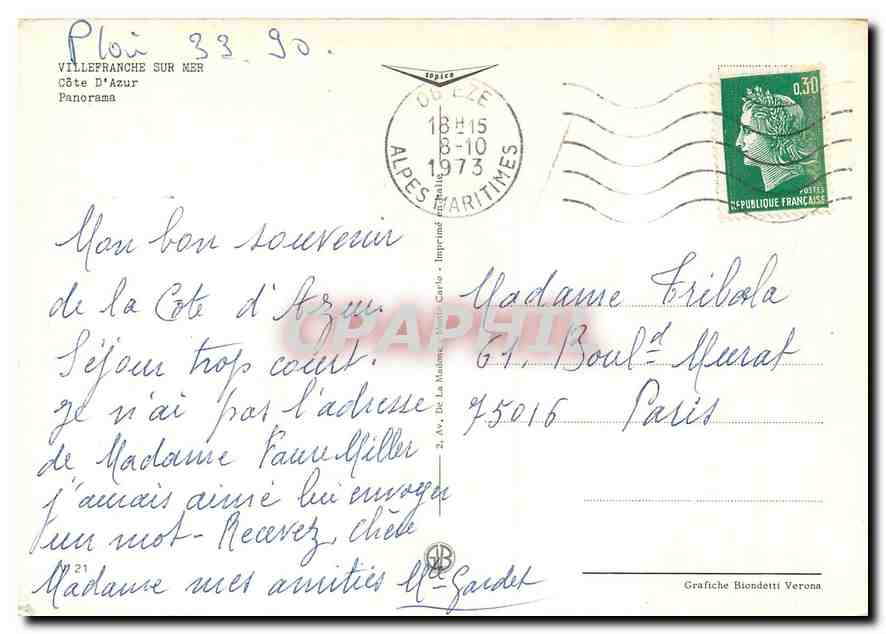 33 90.
VILLEFRANCHE SUR MER
Côte D'Azur
Panorama
topica
06 EZE
18H15
8-10
1973
ALPES MARITIMES
0,30
POSTES
REPUBLIQUE FRANÇAISE
Mon bon souvenir
de la Cote d'Azur.
Séjour trop court.
Je n'ai pas l'adresse
de Madame Faure Miller
j'aurais aimé lui envoyer
un mot - Recevez, chère
Madame mes amitiés Mlle Gardet
Madame Tribola
61, Bould Murat
75016 Paris
2, Av. De La Madone - Monte Carlo - Imprimé en Italie
CPAPHIL
21
Grafiche Biondetti Verona